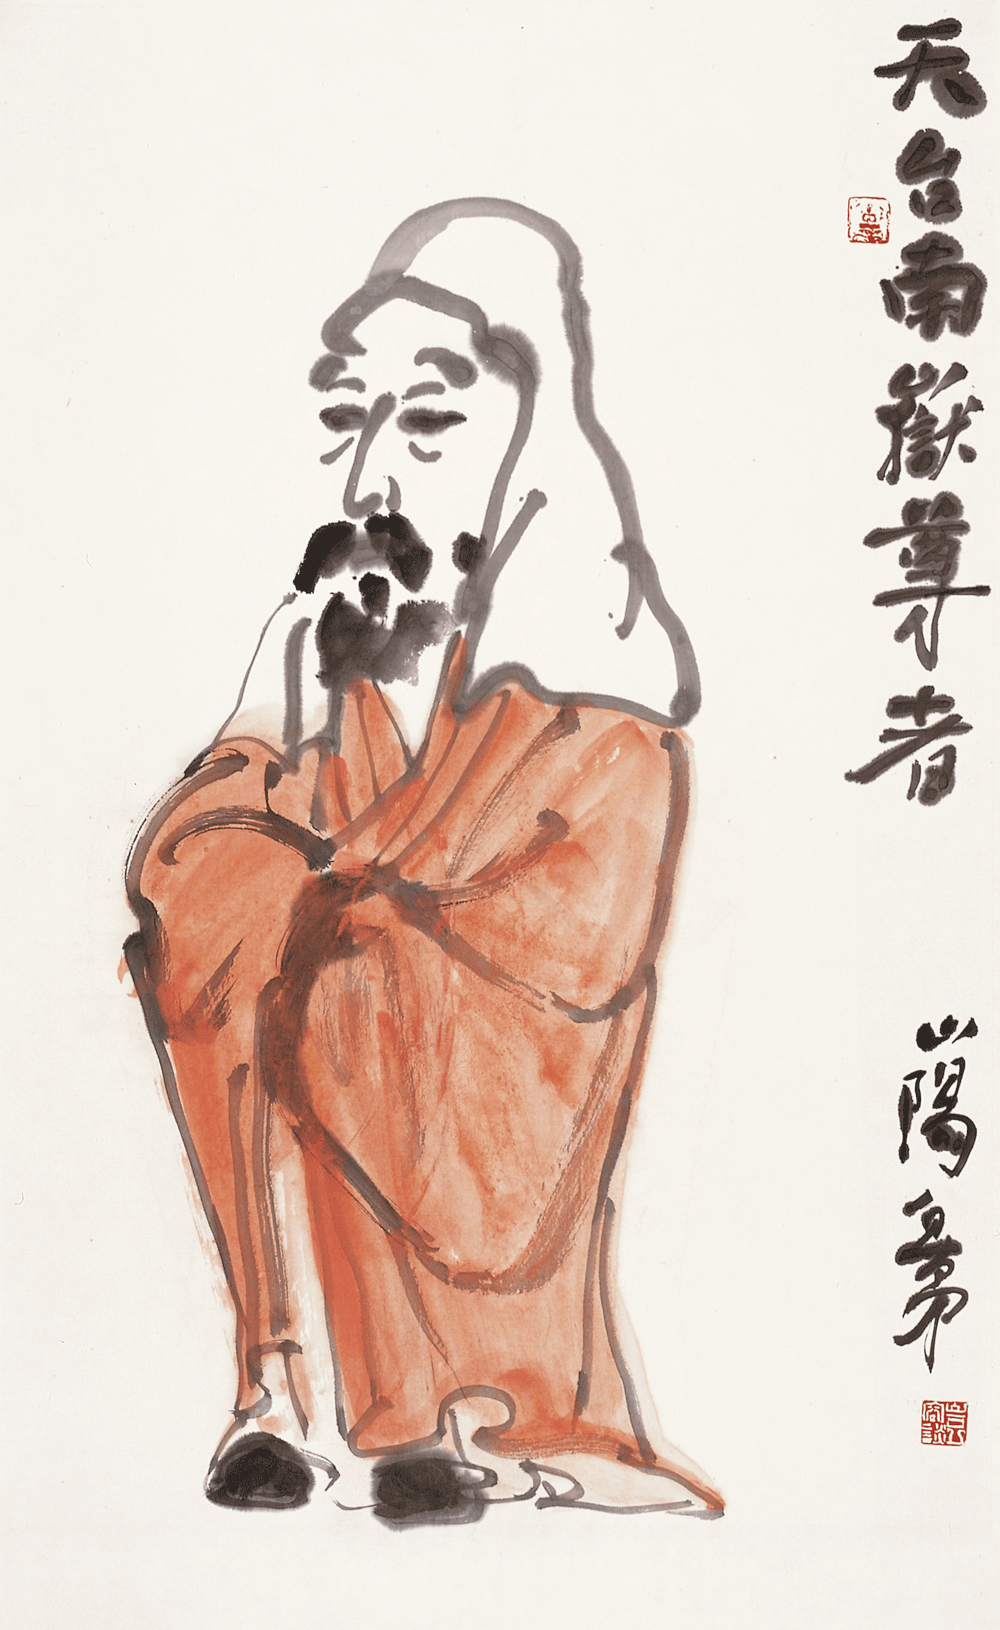 天台南嶽尊者
山陽